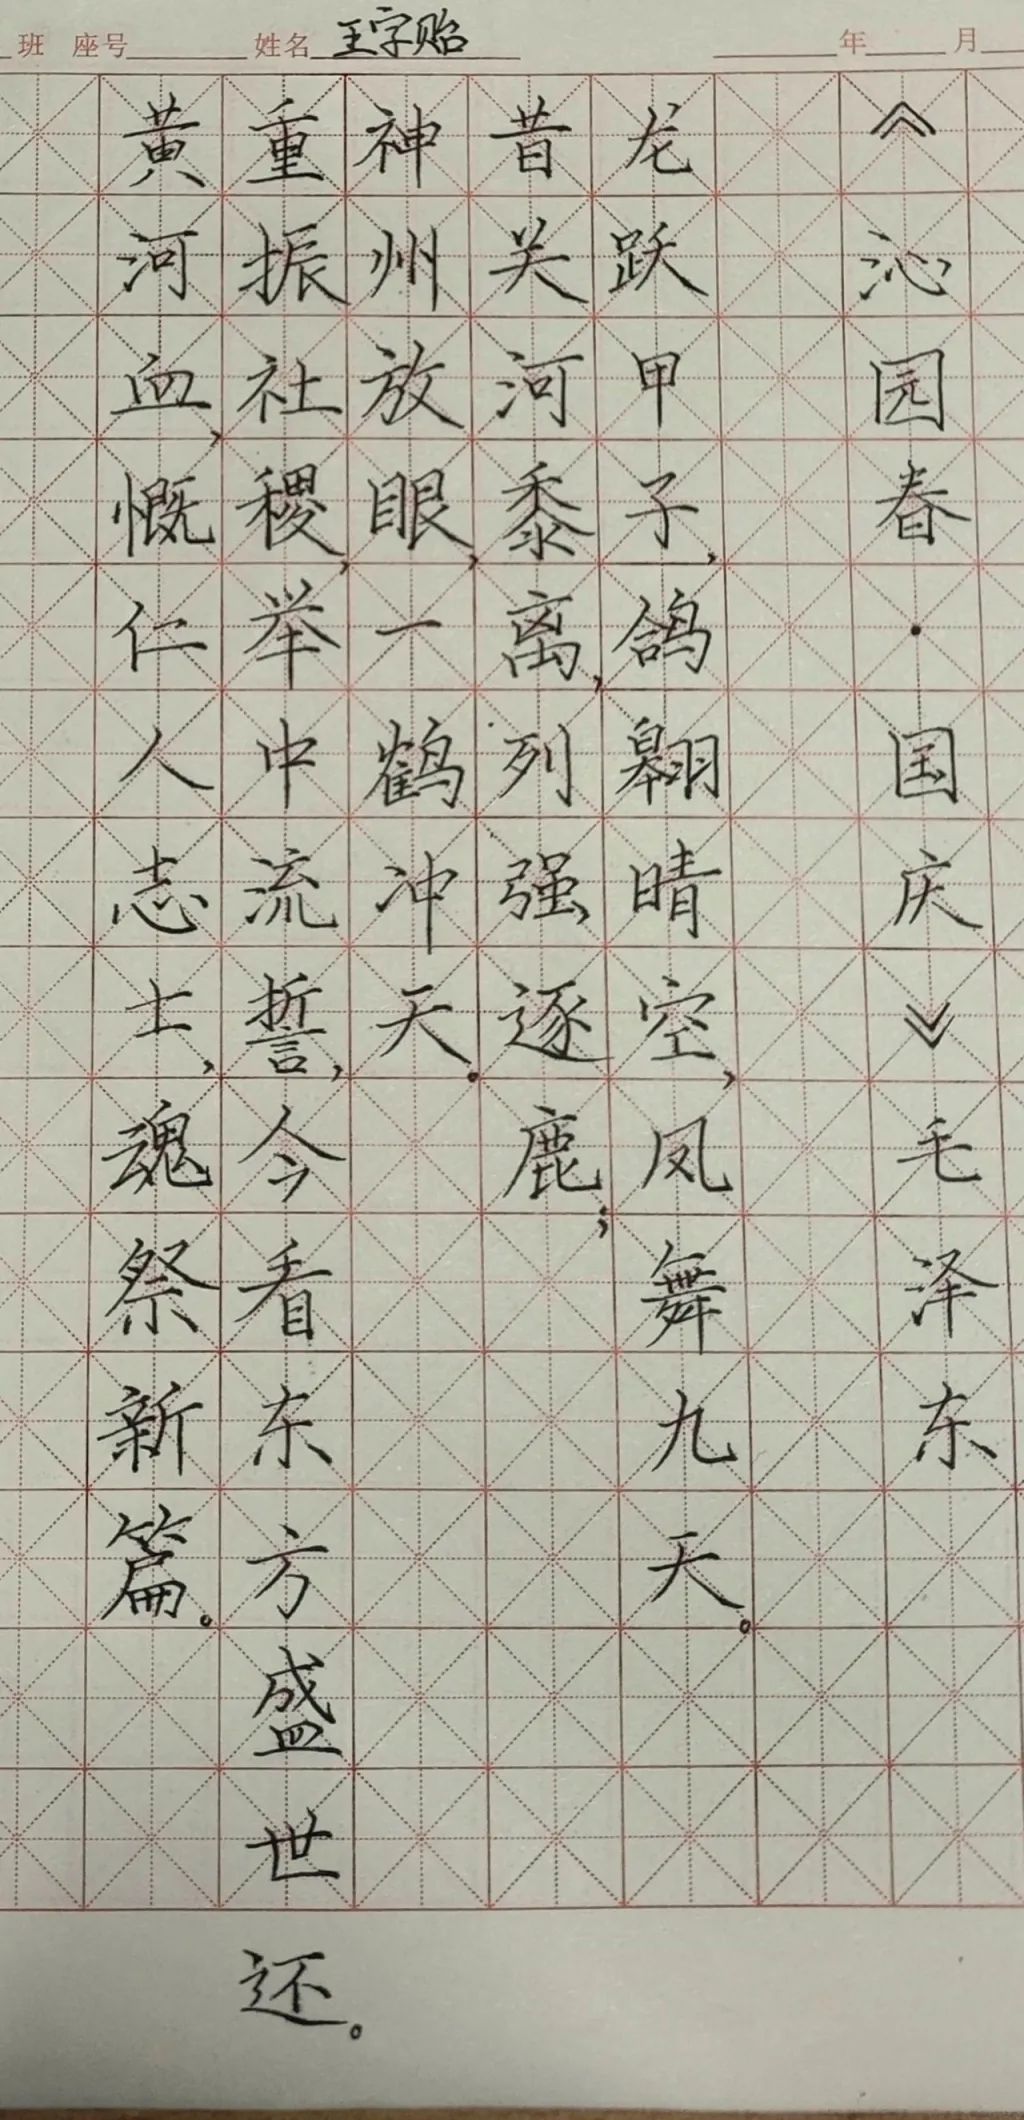 班 座号 姓名 王字贻 年 月
《沁园春·国庆》毛泽东
龙跃甲子，鸽翱晴空，凤舞九天。
昔关河黍离，列强逐鹿；
神州放眼，一鹤冲天。
重振社稷，举中流誓，今看东方盛世还。
黄河血，慨仁人志士，魂祭新篇。